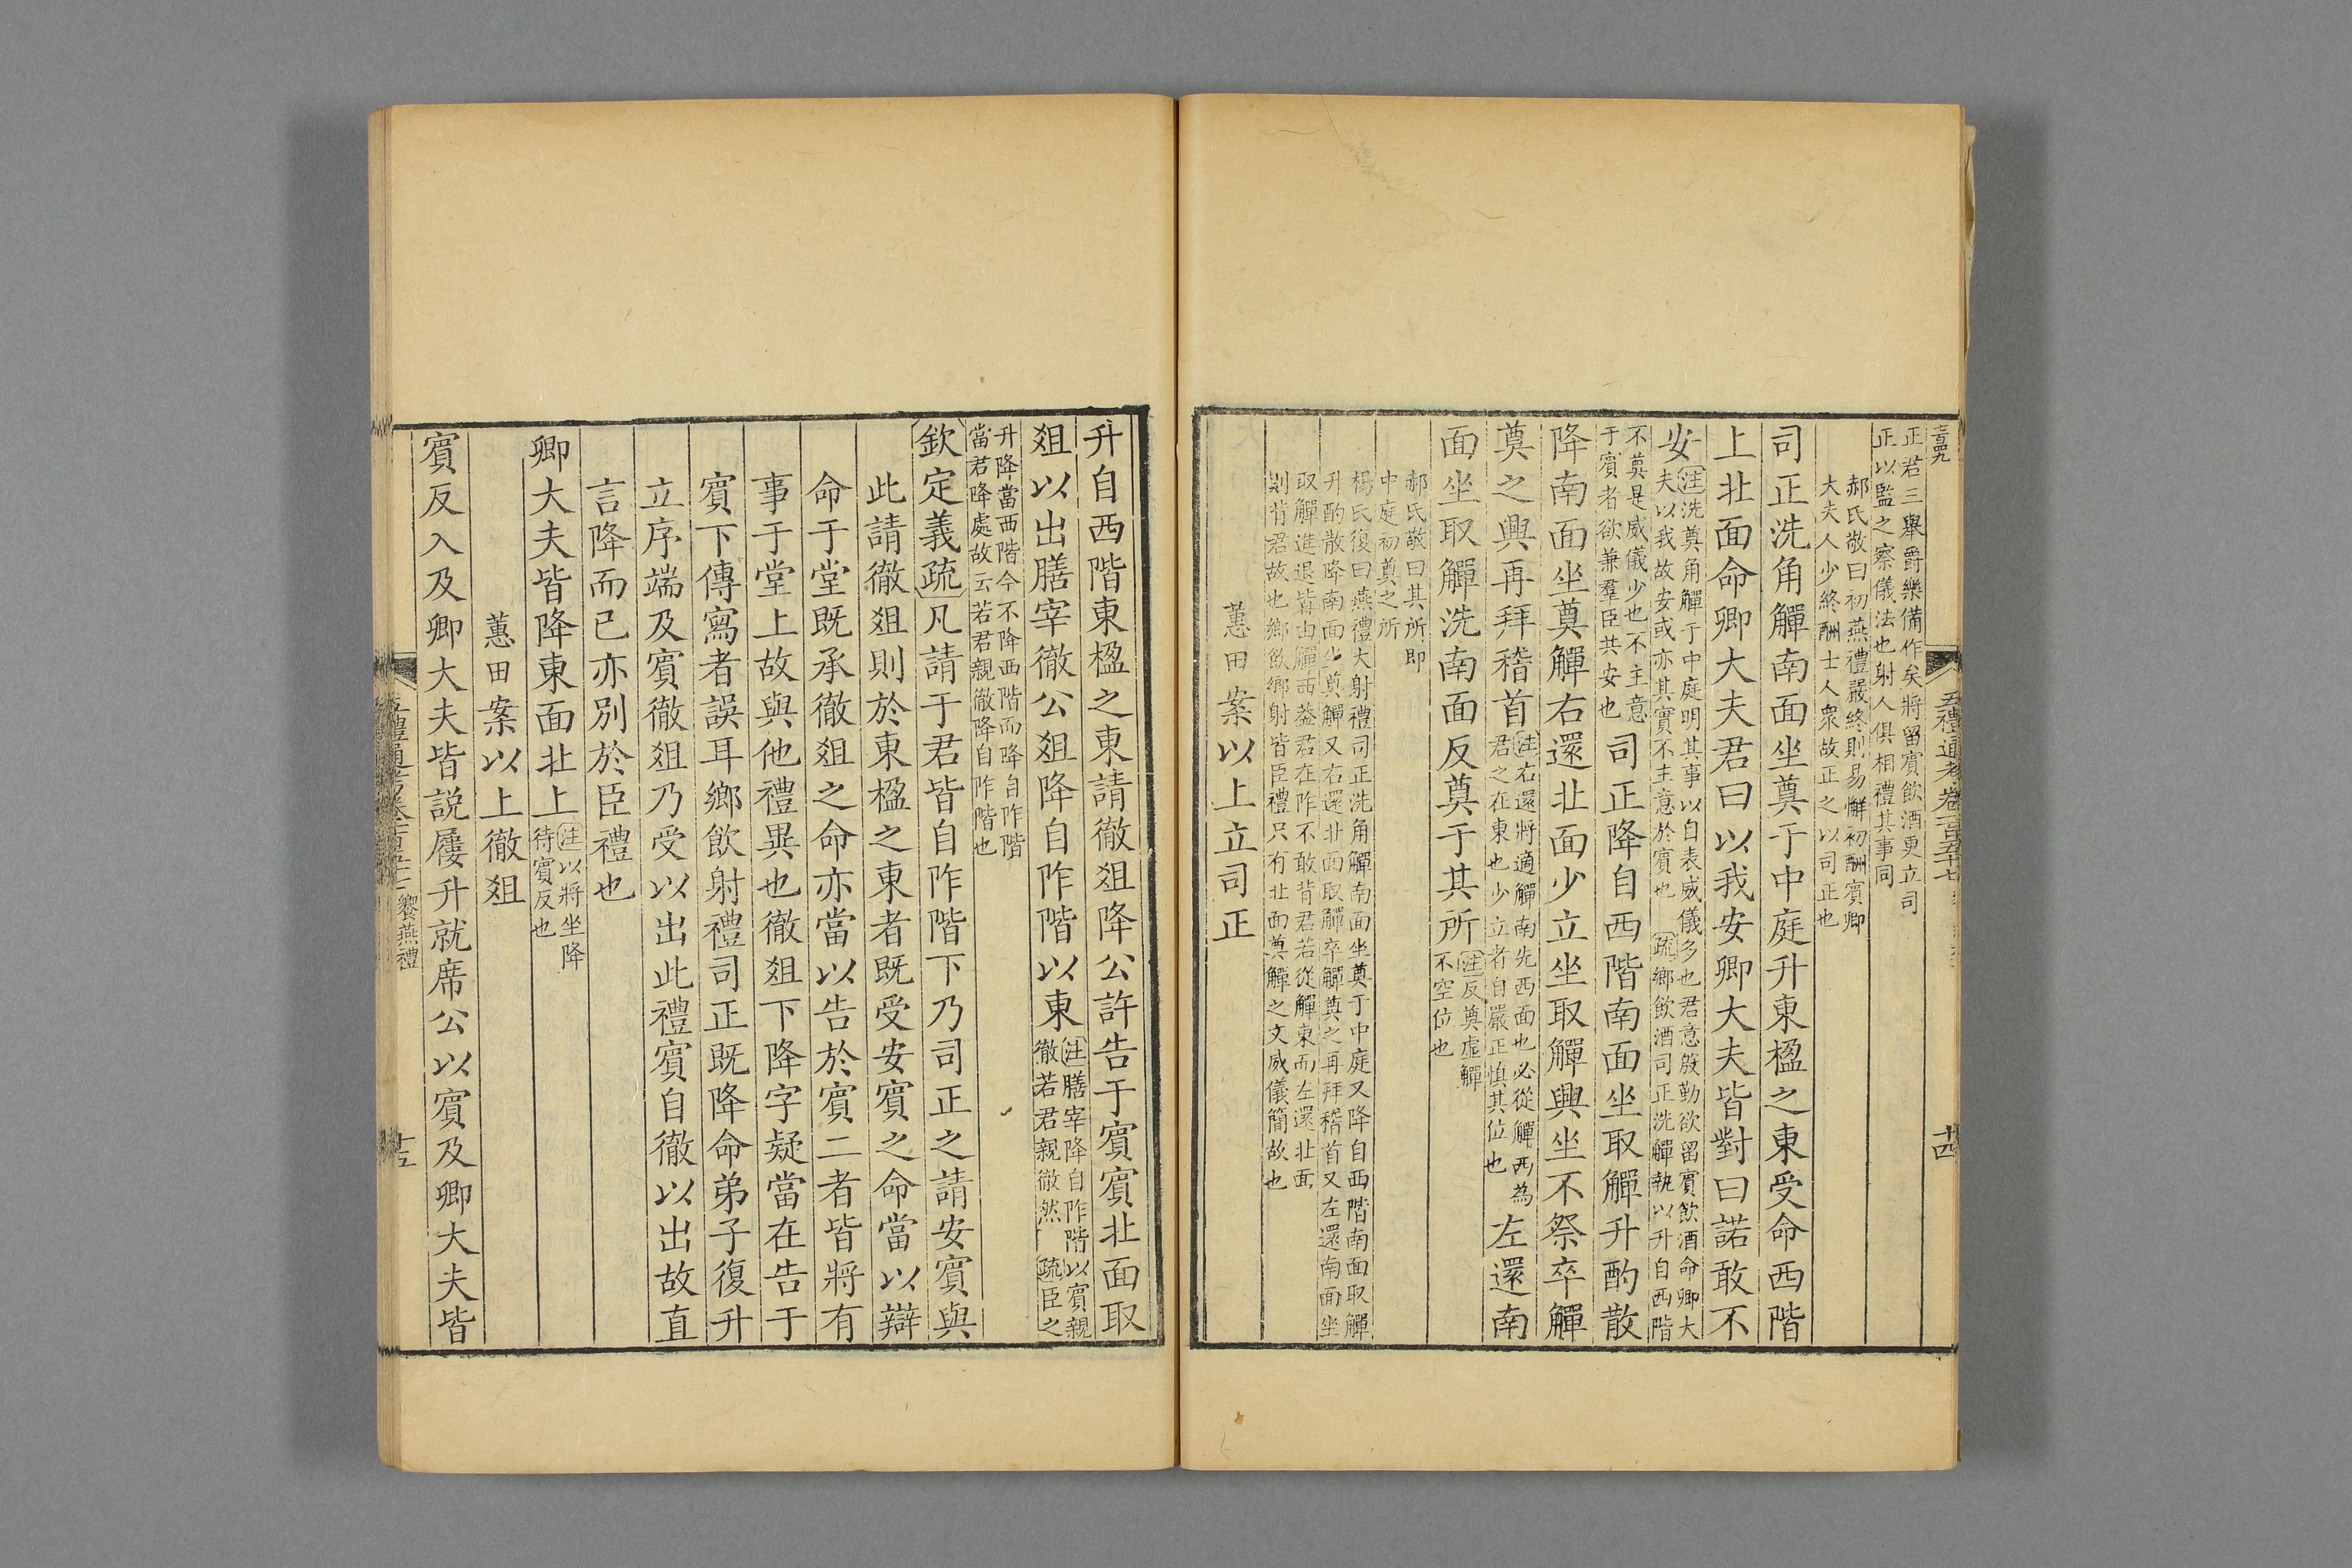 五禮通考卷一百五十七
十四
正君三舉爵樂備作矣將留賓飲酒更立司
正以監之察儀法也射人俱相禮其事同
郝氏敬曰初燕禮嚴終則易懈初酬賓卿
大夫人少終酬士人衆故正之以司正也
司正洗角觶南面坐奠于中庭升東楹之東受命西階
上北面命卿大夫君曰以我安卿大夫皆對曰諾敢不
安
注洗奠角觶于中庭明其事以自表威儀多也君意殷勤欲留賓飲酒命卿大
夫以我故安或亦其實不主意於賓也 疏鄉飲酒司正洗觶執以升自西階
不奠是威儀少也不主意
于賓者欲兼羣臣共安也
司正降自西階南面坐取觶升酌散
降南面坐奠觶右還北面少立坐取觶興坐不祭卒觶
奠之興再拜稽首
注右還將適觶南先西面也必從觶西為
君之在東也少立者自嚴正慎其位也
左還南
面坐取觶洗南面反奠于其所
注反奠虛觶
不空位也
郝氏敬曰其所即
中庭初奠之所
楊氏復曰燕禮大射禮司正洗角觶南面坐奠于中庭又降自西階南面取觶
升酌散降南面坐奠觶又右還北面取觶卒觶奠之再拜稽首又左還南面坐
取觶進退皆由觶西葢君在阼不敢背君若從觶東而左還北面
則背君故也鄉飲鄉射皆臣禮只有北面奠觶之文威儀簡故也
蕙田案以上立司正
升自西階東楹之東請徹俎降公許告于賓賓北面取
俎以出膳宰徹公俎降自阼階以東
注膳宰降自阼階以賓親
徹若君親徹然 疏臣之
升降當西階今不降西階而降自阼階
當若降處故云若君親徹降自阼階也
欽定義疏凡請于君皆自阼階下乃司正之請安賓與
此請徹俎則於東楹之東者既受安賓之命當以辯
命于堂既承徹俎之命亦當以告於賓二者皆將有
事于堂上故與他禮異也徹俎下降字疑當在告于
賓下傳寫者誤耳鄉飲射禮司正既降命弟子復升
立序端及賓徹俎乃受以出此禮賓自徹以出故直
言降而已亦別於臣禮也
卿大夫皆降東面北上
注以將坐降
待賓反也
蕙田案以上徹俎
賓反入及卿大夫皆説屨升就席公以賓及卿大夫皆
饗燕禮
十五